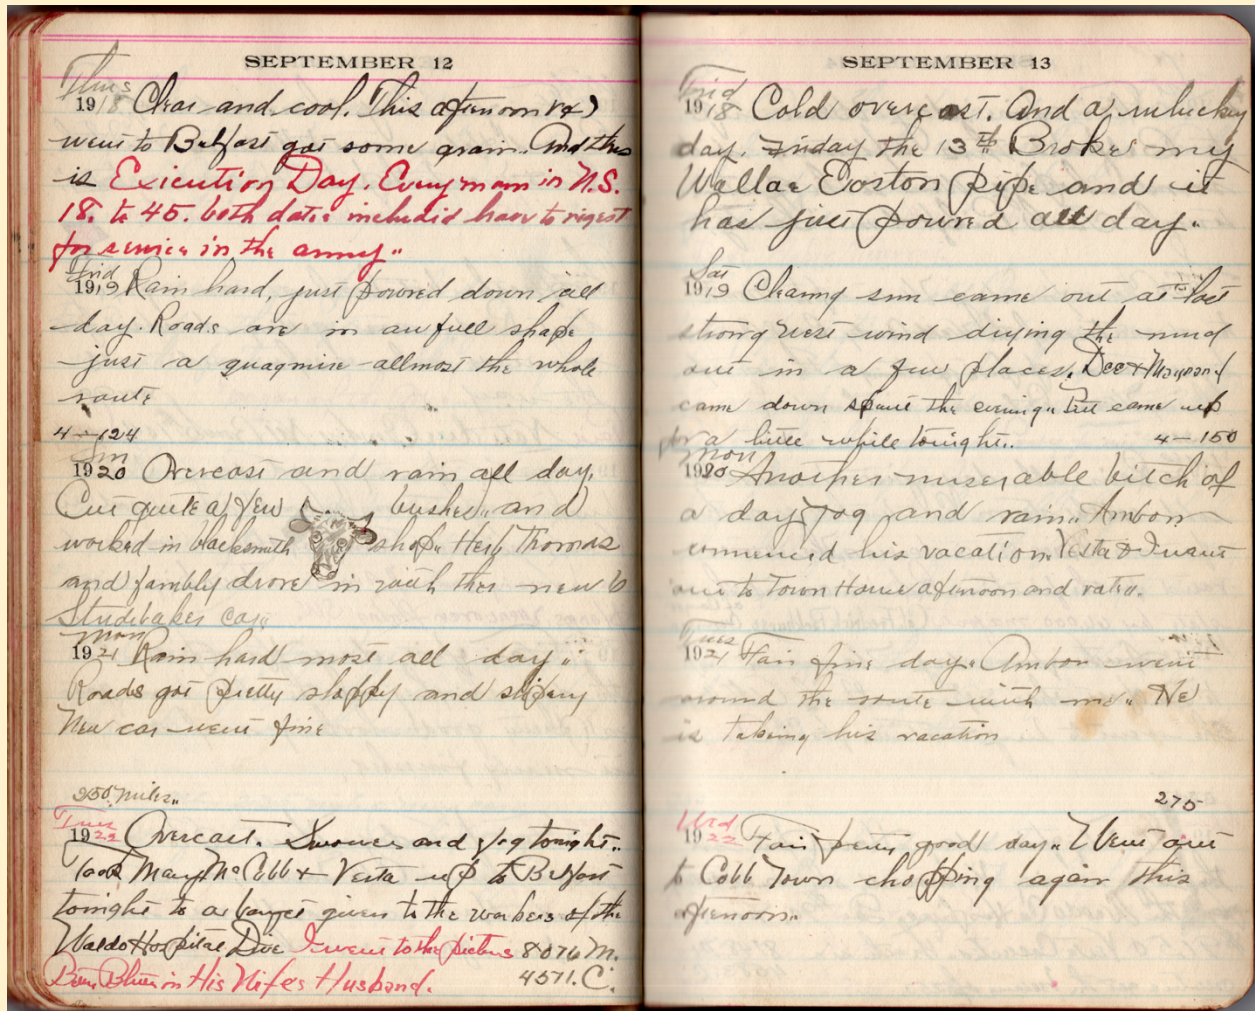 SEPTEMBER 12
Thurs
1918 Clear and cool. This afternoon V & I
went to Belfast got some grain. And this
is Exicution Day. Every man in N.S.
18. to 45. both dates includid have to rigest
for service in the army"
Frid
1919 Rain hard, just poured down all
day. Roads are in aufull shape
just a quagmire allmost the whole
route
4 - 124
Sun
1920 Overcast and rain all day.
Cut quite a few bushes" and
worked in blacksmith shop. Herb Thomas
and fambly drove in with ther new 6
Studebaker car"
Mon
1921 Rain hard most all day"
Roads got pretty sloppy and slipery
New car went fine
250 miles"
Tues
1922 Overcast. Showers and fog tonight"
Took Mary McCobb + Vesta up to Belfast
tonight to a banqet given to the workers of the
Waldo Hospital Drive I went to the picturs 8076 M.
in His Wife's Husband. 4571. C.
SEPTEMBER 13
Frid
1918 Cold overcast. And a unluckey
day. Friday the 13th Broke my
Wallae Easton pipe and it
has just poured all day"
Sat
1919 Clearing sun came out at last
strong West wind drying the mud
out in a few places. Dee + Maynard
came down spent the evening" came up
for a little while tonight" 4 - 150
Mon
1920 Another miserable bitch of
a day fog and rain" Ambon
commencd his vacation. Vesta & I went
out to Town House afternoon and voted".
Tues
1921 Fair fine day" Ambon went
around the route with me" He
is taking his vacation
275
Wed
1922 Fair pretty good day" Went out
to Cobb Town chopping again this
afternoon"